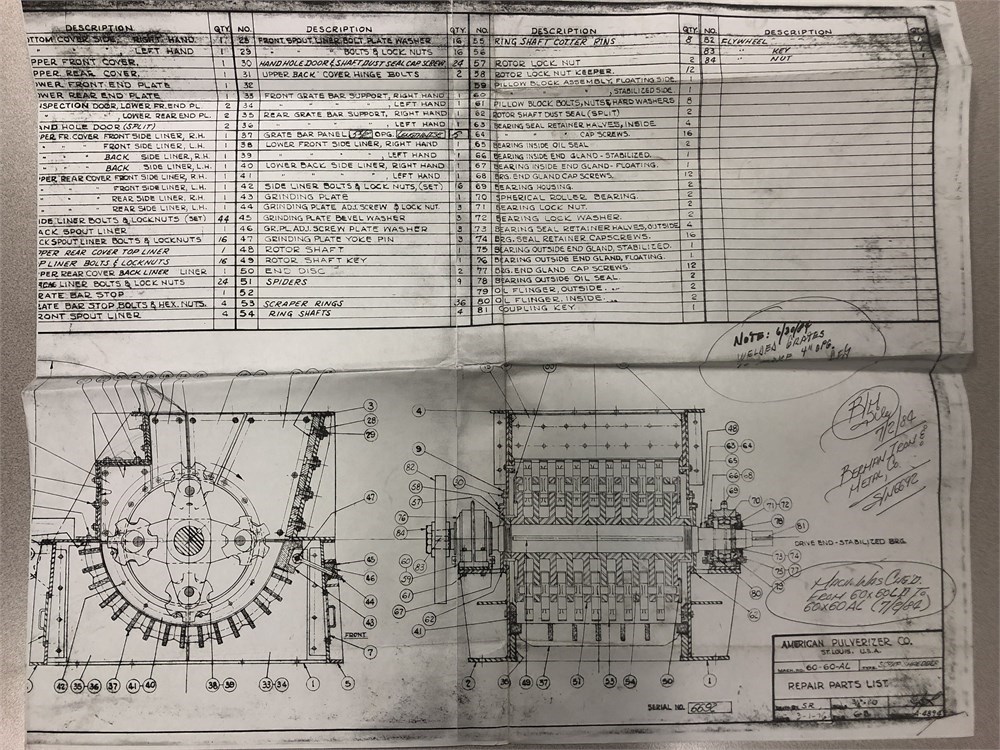 DESCRIPTION QTY. NO. DESCRIPTION QTY NO. DESCRIPTION QTY NO. DESCRIPTION
TTOM COVER SIDE, RIGHT HAND 1
" , LEFT HAND 1
PPER FRONT COVER, 1
PPER REAR COVER, 1
WER FRONT END PLATE 1
WER REAR END PLATE 1
SPECTION DOOR, LOWER FR. END PL 2
" , LOWER REAR END PL. 2
AND HOLE DOOR (SPLIT) 2
PER FR. COVER FRONT SIDE LINER, R.H. 1
" FRONT SIDE LINER, L.H. 1
" BACK SIDE LINER, R.H. 1
" BACK SIDE LINER, L.H. 1
PER, REAR COVER FRONT SIDE LINER, R.H. 1
" FRONT SIDE LINER, L.H. 1
" REAR SIDE LINER, R.H. 1
" REAR SIDE LINER, L.H. 1
IDE LINER BOLTS & LOCKNUTS (SET) 44
ACK SPOUT LINER 1
CK SPOUT LINER BOLTS & LOCKNUTS 16
PPER REAR COVER TOP LINER 1
P LINER BOLTS & LOCKNUTS 16
PER REAR COVER BACK LINER LINER 1
LINER BOLTS & LOCK NUTS 24
RATE BAR STOP 1
RATE BAR STOP BOLTS & HEX. NUTS. 4
RONT SPOUT LINER 4
28 FRONT SPOUT LINER BOLT PLATE WASHER 16
29 " " BOLTS & LOCK NUTS 16
30 HAND HOLE DOOR & SHAFT DUST SEAL CAP SCREW 24
31 UPPER BACK COVER HINGE BOLTS 2
32
33 FRONT GRATE BAR SUPPORT, RIGHT HAND 1
34 " " " , LEFT HAND 1
35 REAR GRATE BAR SUPPORT, RIGHT HAND 1
36 " " " , LEFT HAND 1
37 GRATE BAR PANEL OPG.
38 LOWER FRONT SIDE LINER, RIGHT HAND 1
39 " " " , LEFT HAND 1
40 LOWER BACK SIDE LINER, RIGHT HAND 1
41 " " " , LEFT HAND 1
42 SIDE LINER BOLTS & LOCK NUTS, (SET) 16
43 GRINDING PLATE 1
44 GRINDING PLATE ADJ. SCREW & LOCK NUT. 3
45 GRINDING PLATE BEVEL WASHER 3
46 GR. PL. ADJ. SCREW PLATE WASHER 3
47 GRINDING PLATE YOKE PIN 3
48 ROTOR SHAFT 1
49 ROTOR SHAFT KEY 1
50 END DISC 2
51 SPIDERS 9
52
53 SCRAPER RINGS 36
54 RING SHAFTS 4
55 RING SHAFT COTTER PINS 8
56
57 ROTOR LOCK NUT 2
58 ROTOR LOCK NUT KEEPER. 12
59 PILLOW BLOCK ASSEMBLY, FLOATING SIDE. 1
60 " " " , STABILIZED SIDE 1
61 PILLOW BLOCK BOLTS, NUTS & HARD WASHERS 8
62 ROTOR SHAFT DUST SEAL (SPLIT) 2
63 BEARING SEAL RETAINER HALVES, INSIDE 4
64 " " " CAP SCREWS. 16
65 BEARING INSIDE OIL SEAL 2
66 BEARING INSIDE END GLAND - STABILIZED. 1
67 BEARING INSIDE END GLAND - FLOATING. 1
68 BRG. END GLAND CAP SCREWS. 12
69 BEARING HOUSING. 2
70 SPHERICAL ROLLER BEARING. 2
71 BEARING LOCK NUT. 2
72 BEARING LOCK WASHER. 2
73 BEARING SEAL RETAINER HALVES, OUTSIDE 4
74 BRG. SEAL RETAINER CAPSCREWS. 16
75 BEARING OUTSIDE END GLAND, STABILIZED. 1
76 BEARING OUTSIDE END GLAND, FLOATING. 1
77 BRG. END GLAND CAP SCREWS. 12
78 BEARING OUTSIDE OIL SEAL. 2
79 OIL FLINGER, OUTSIDE. 2
80 OIL FLINGER, INSIDE. 2
81 COUPLING KEY. 1
82 FLYWHEEL
83 " KEY
84 " NUT
NOTE: 6/20/84
WELDED GRATES
4" OPG.
B/H
7/2/84
BERMAN IRON &
METAL CO.
S/N 6692
3
28
29
47
45
46
44
43
FRONT
7
42 35-36 37 41-40 38-39 33-34 1 5
4
9
82
58
57
76
84
60
83
59
61
67
62
41
50
48
63-64
65
66-68
69
70 71-72
78
81
DRIVE END-STABILIZED BRG.
73-74
75-77
79
80
62
2 49 37 51 53 54 50 1
MACH. WAS CVTD.
FROM 60x60LH TO
60x60AL (7/9/84)
SERIAL NO. 6692
AMERICAN PULVERIZER CO.
ST. LOUIS, U.S.A.
60-60-AL SCRAP SHREDDER
REPAIR PARTS LIST
SR